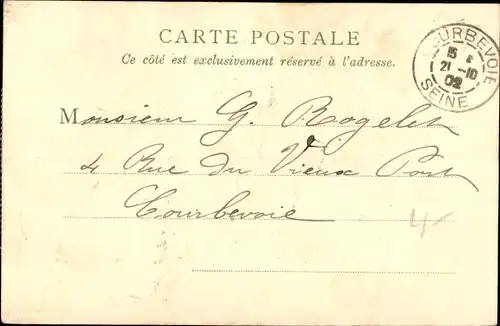 CARTE POSTALE
Ce côté est exclusivement réservé à l'adresse.
COURBEVOIE
15 E
21 -10
02
SEINE
Monsieur G. Rogelet
4 Rue du Vieux Pont
Courbevoie